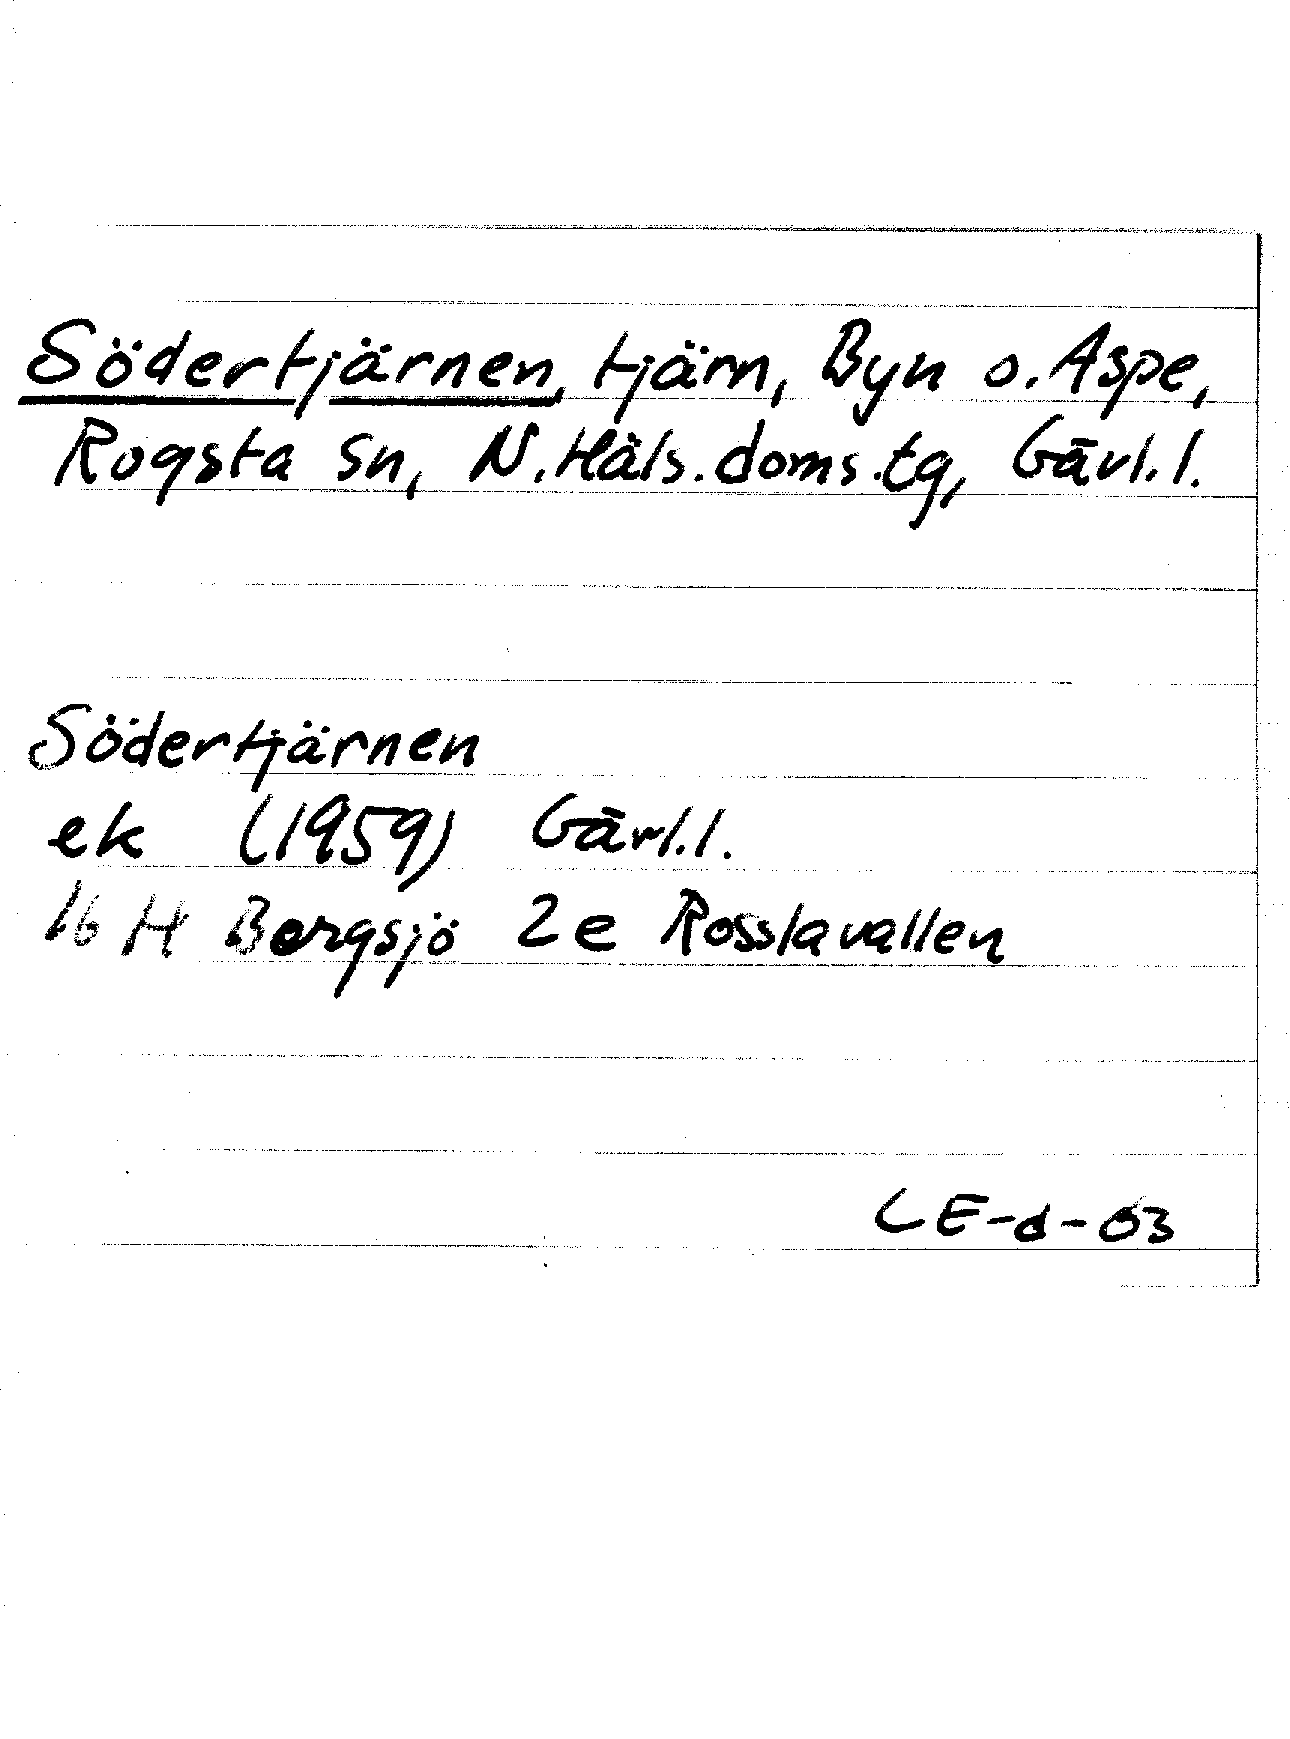 Södertjärnen, tjärn, Byn o. Aspe,
Rogsta sn, N. Häls. doms. tg, Gävl. l.
Södertjärnen
ek (1959) Gävl. l.
16 H Bergsjö 2e Rosslavallen
CE-d-63